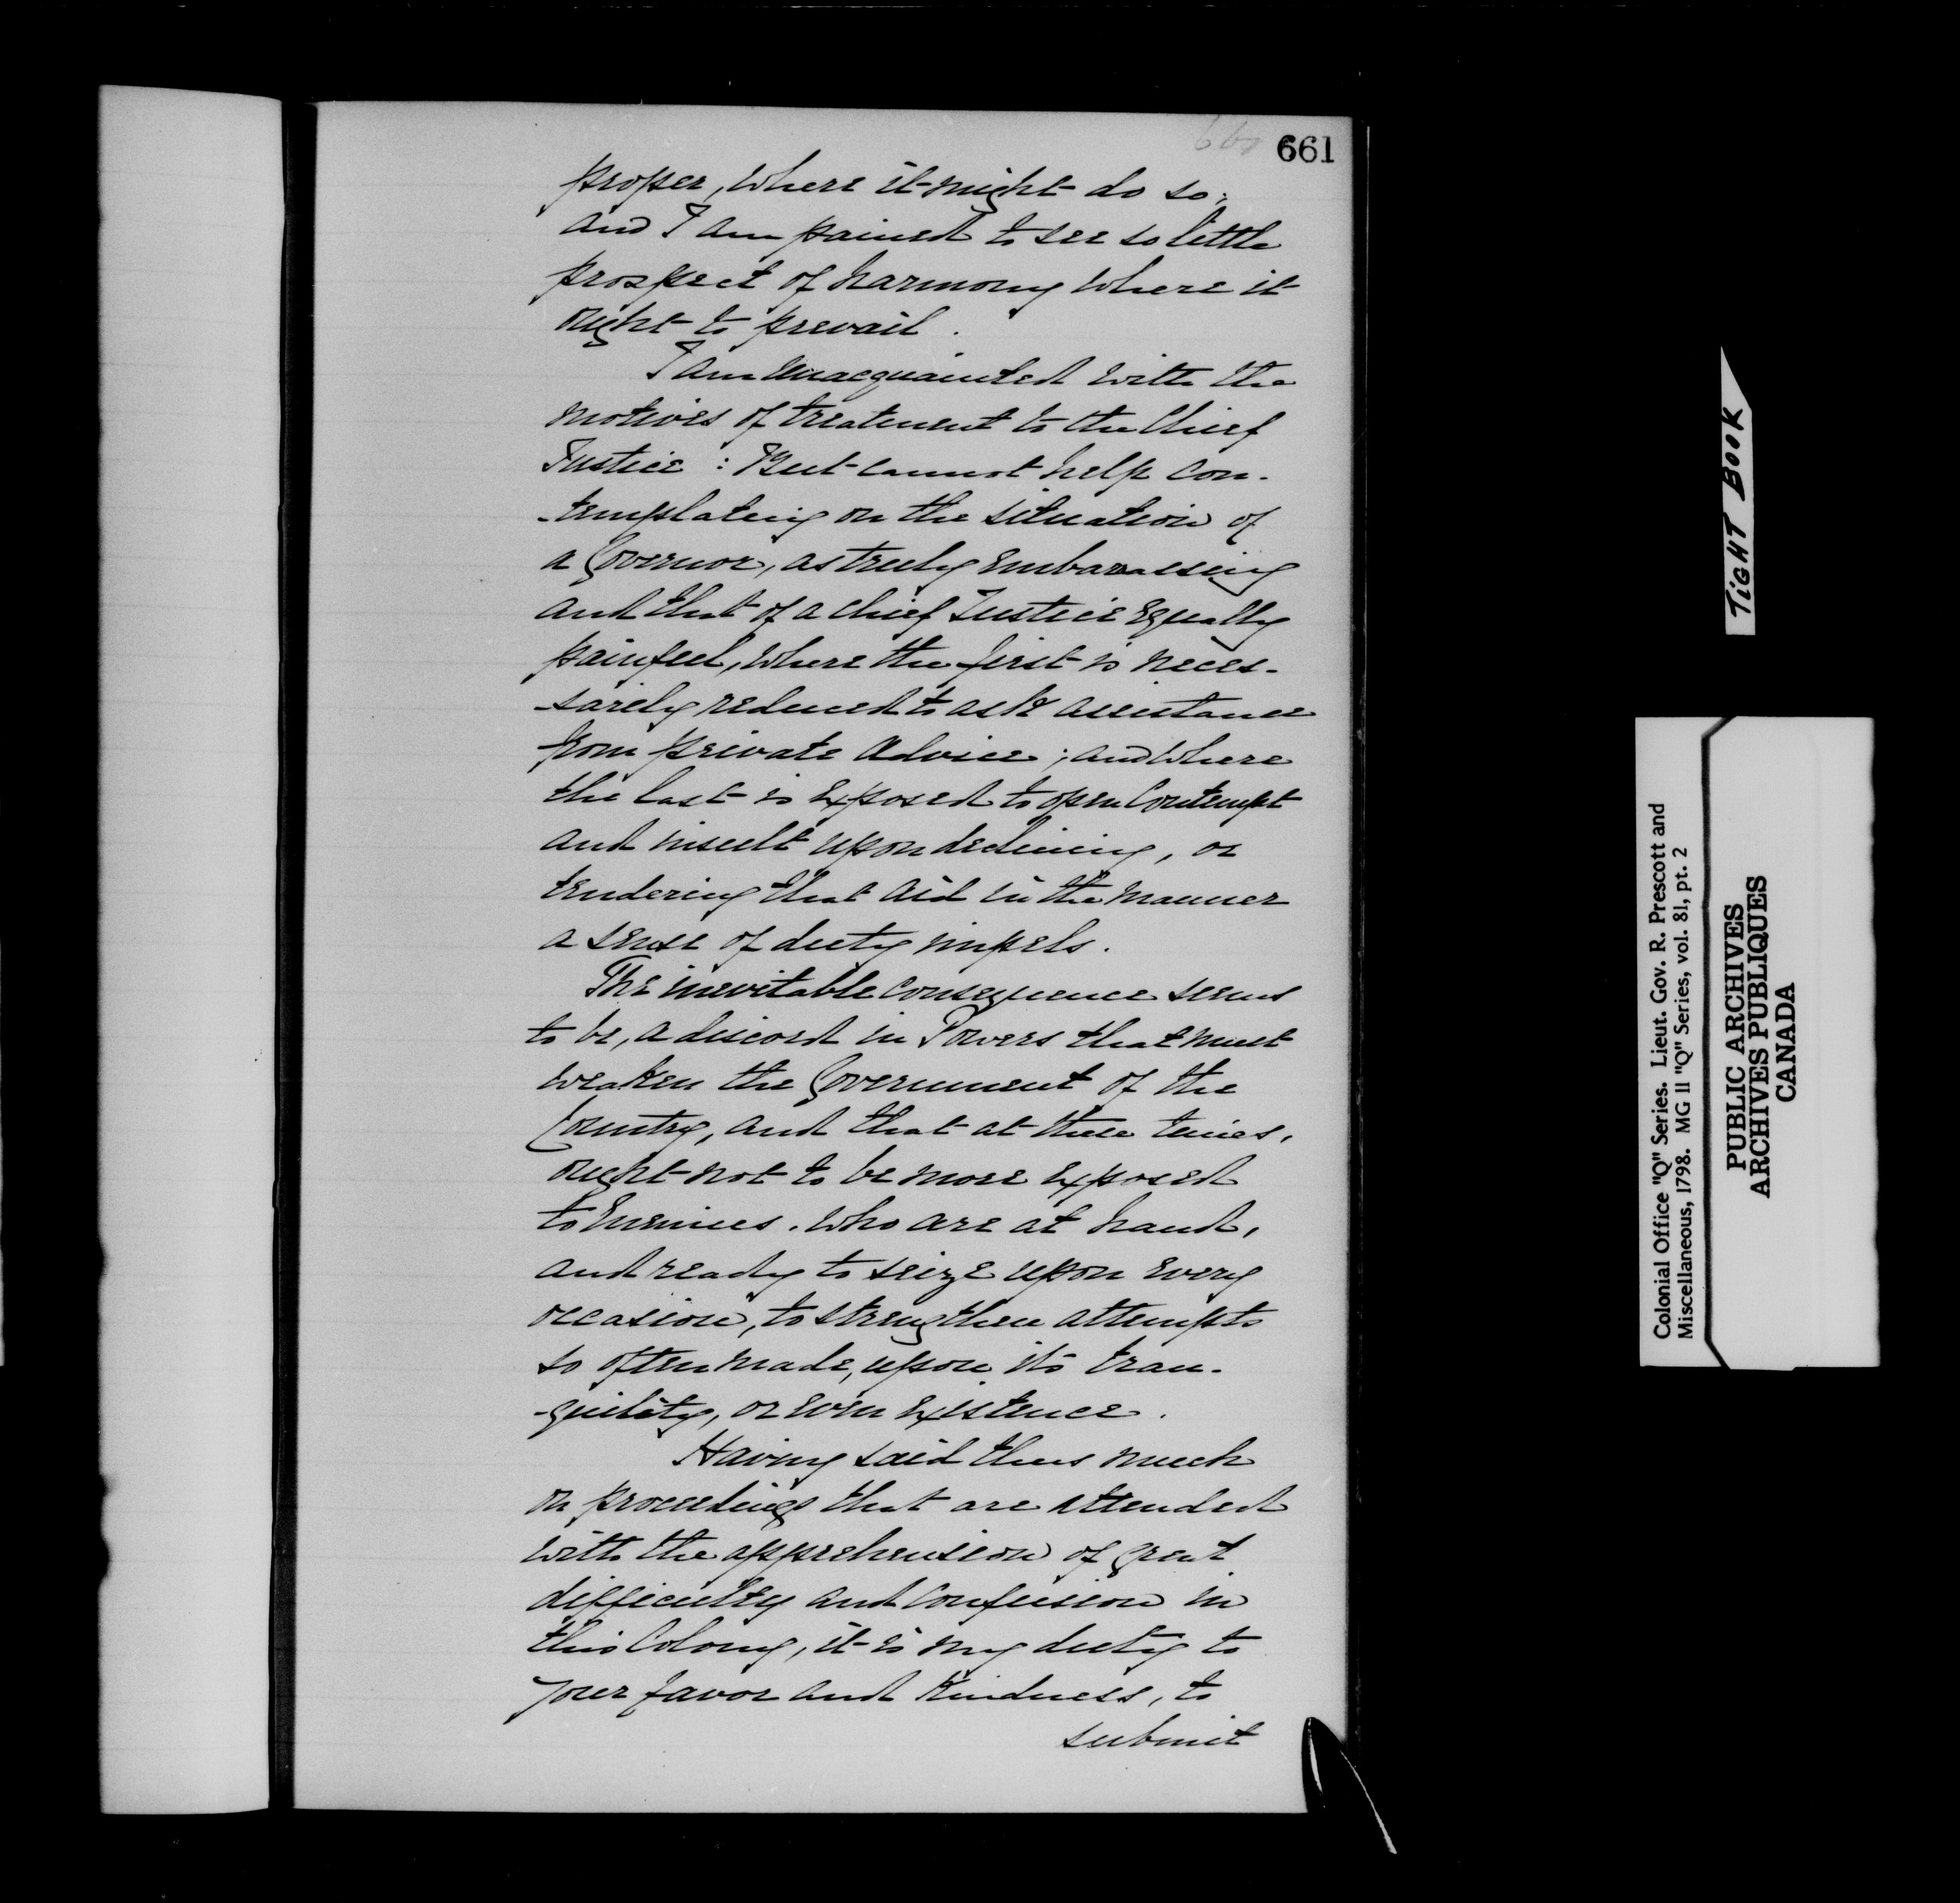 661
proper, where it might do so;
and I am pained to see so little
prospect of harmony where it
ought to prevail.
I am unacquainted with the
motives of treatment to the Chief
Justice : But cannot help con-
-templating on the situation of
a Governor, as truly embarassing
and that of a chief Justice equally
painful, where the first is neces-
-sarily reduced to ask assistance
from private advice; and where
the last is exposed to open Contempt
and insult upon declining, or
tendering that aid in the manner
a sense of duty impels.
The inevitable consequence seems
to be, a discord in Powers that must
weaken the Government of the
Country, and that at these times,
ought not to be more exposed
to Enemies, who are at hand,
and ready to seize upon every
occasion, to strengthen attempts
so often made, upon its tran-
-quility, or even existence.
Having said thus much
on proceedings that are attended
with the apprehension of great
difficulty and confusion in
this Colony, it is my duty to
your favor and Kindness, to
submit
TIGHT BOOK
Colonial Office "Q" Series. Lieut. Gov. R. Prescott and
Miscellaneous, 1798. MG 11 "Q" Series, vol. 81, pt. 2
PUBLIC ARCHIVES
ARCHIVES PUBLIQUES
CANADA